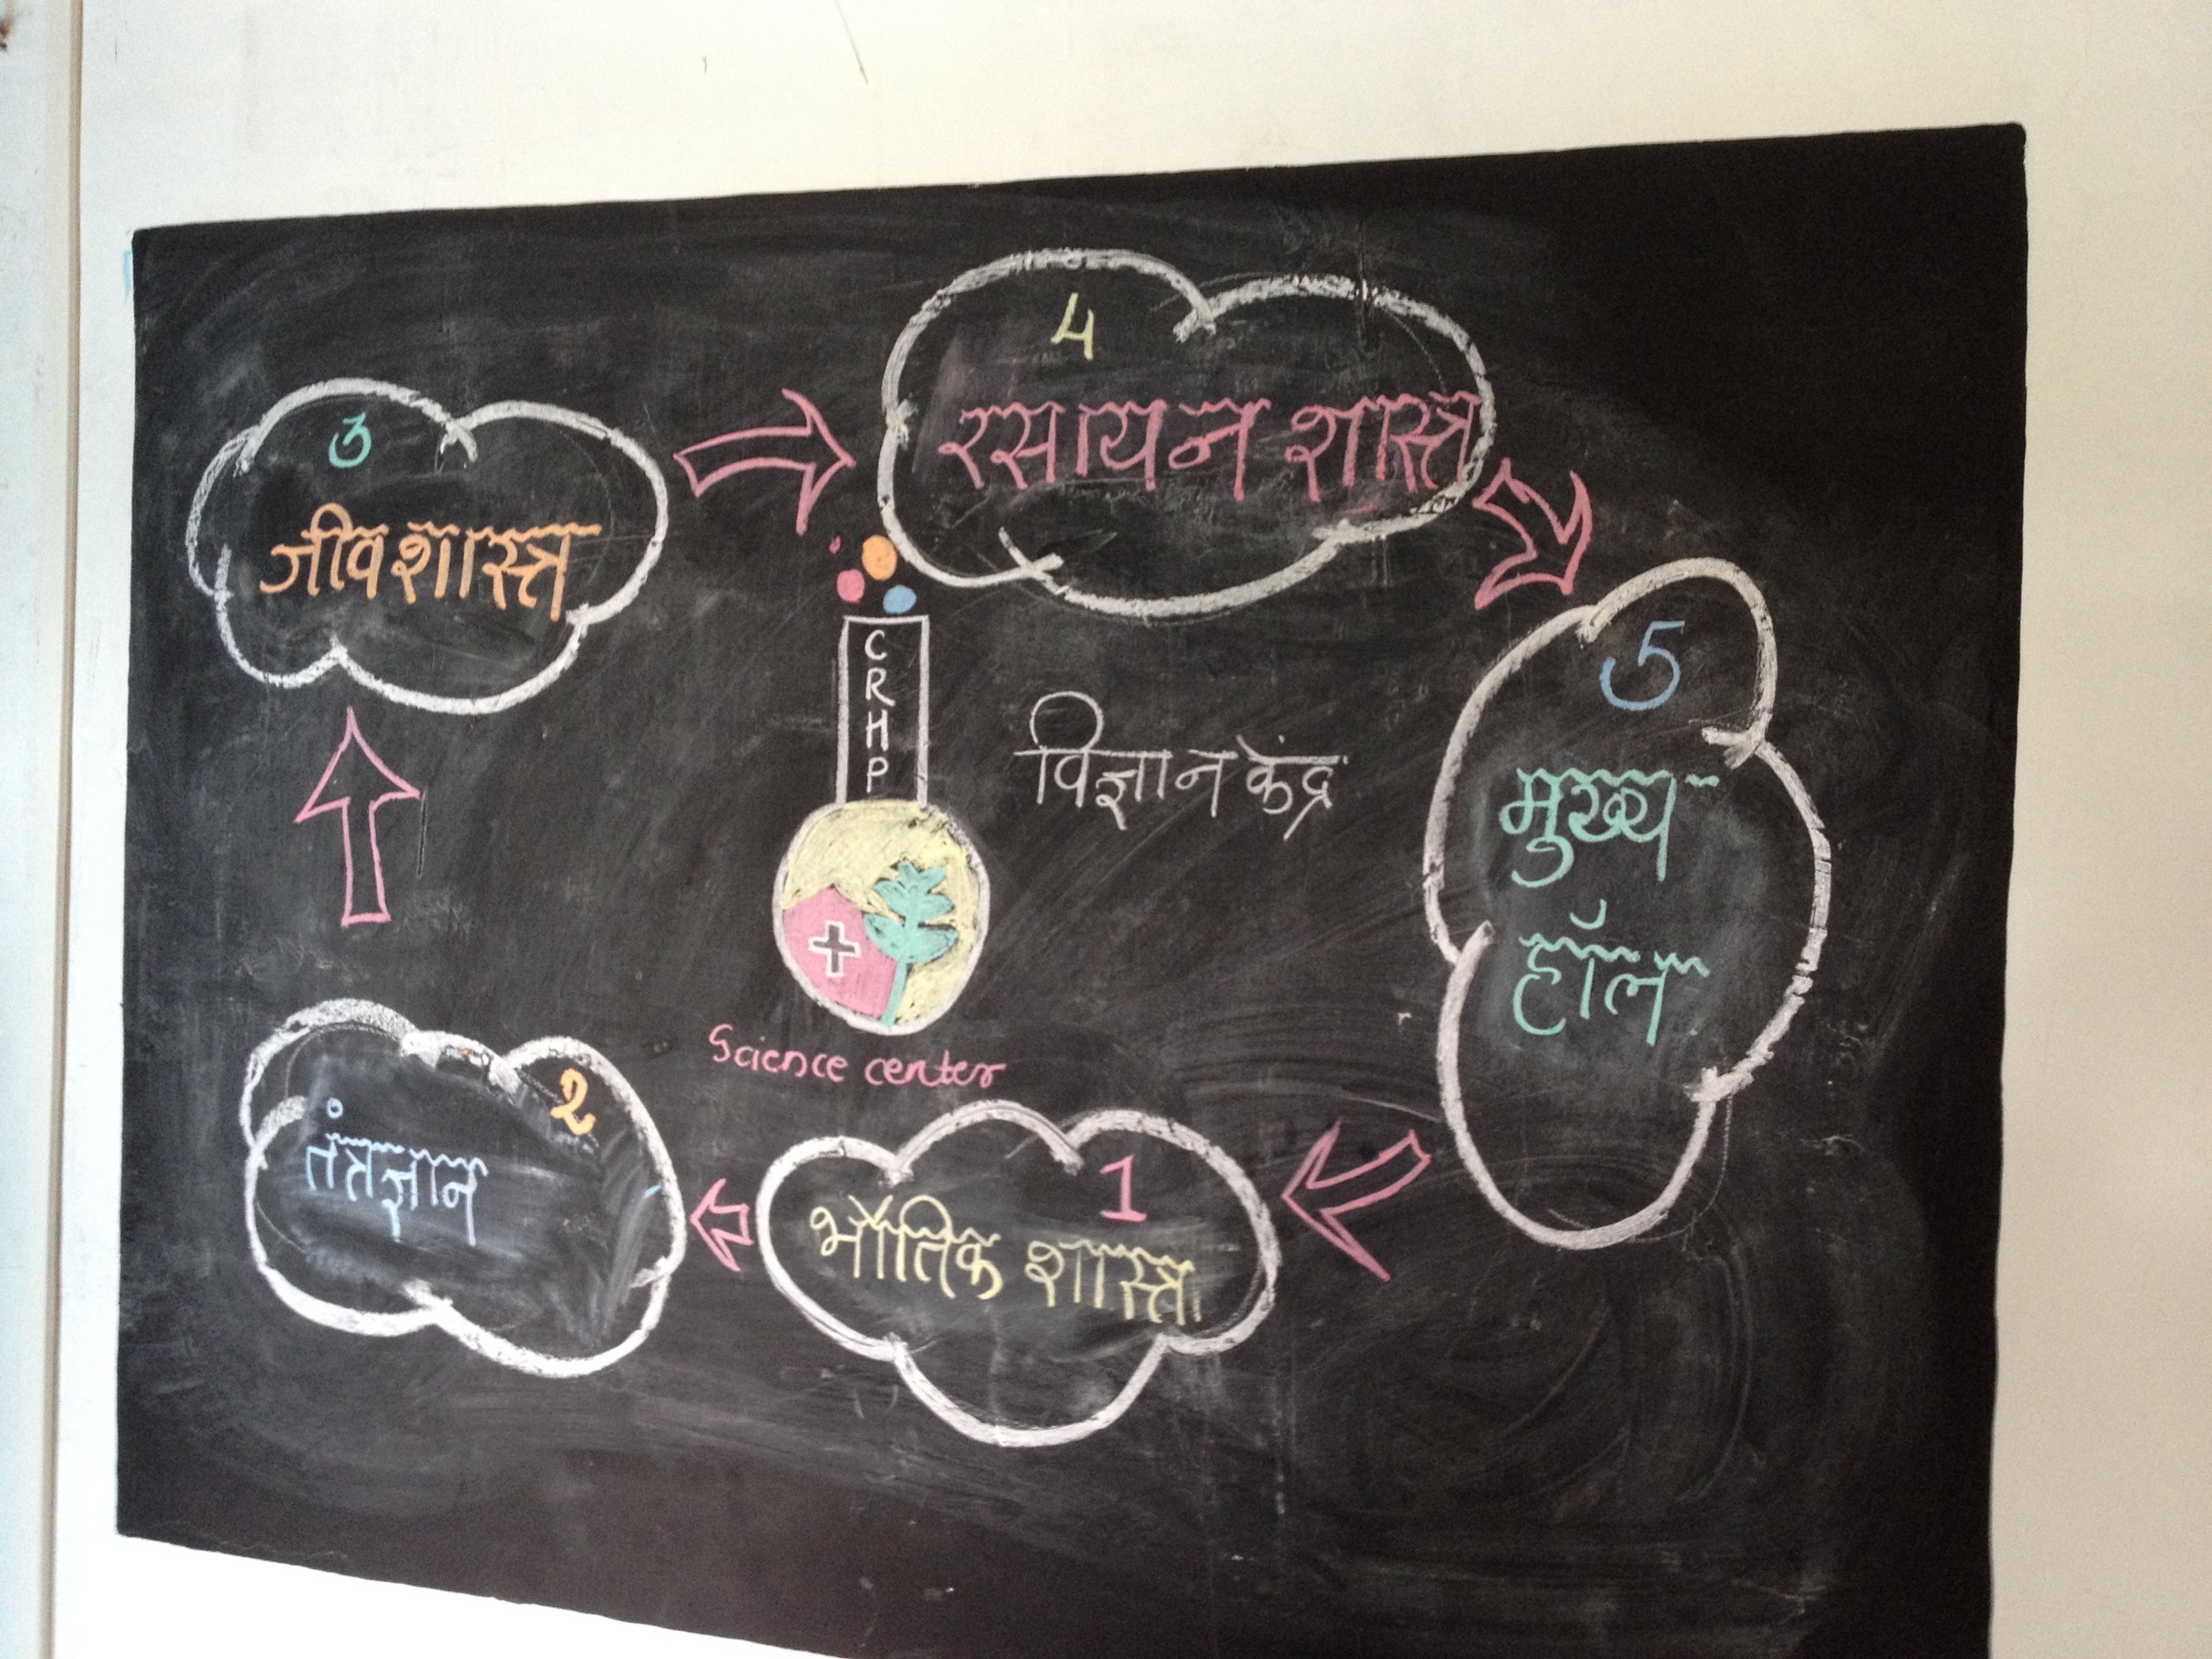 4
रसायन शास्त्र
3
जीवशास्त्र
CRHP
विज्ञान केंद्र
5
मुख्य
हॉल
Science center
2
तंत्रज्ञान
1
भौतिक शास्त्र